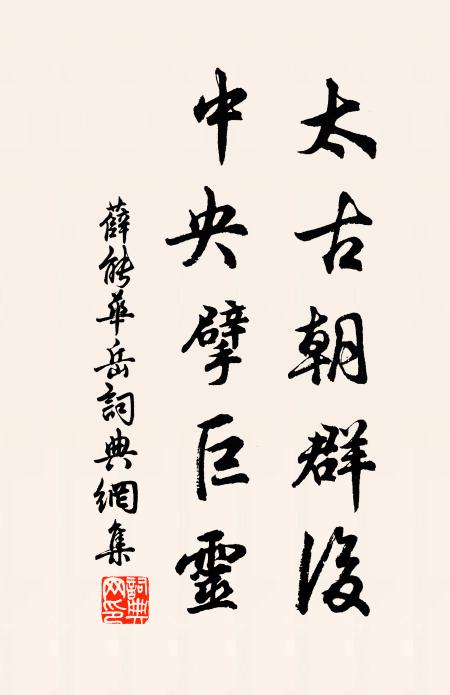 太古朝群後
中央擘巨靈
薛能華岳詞典網集
詞典網印